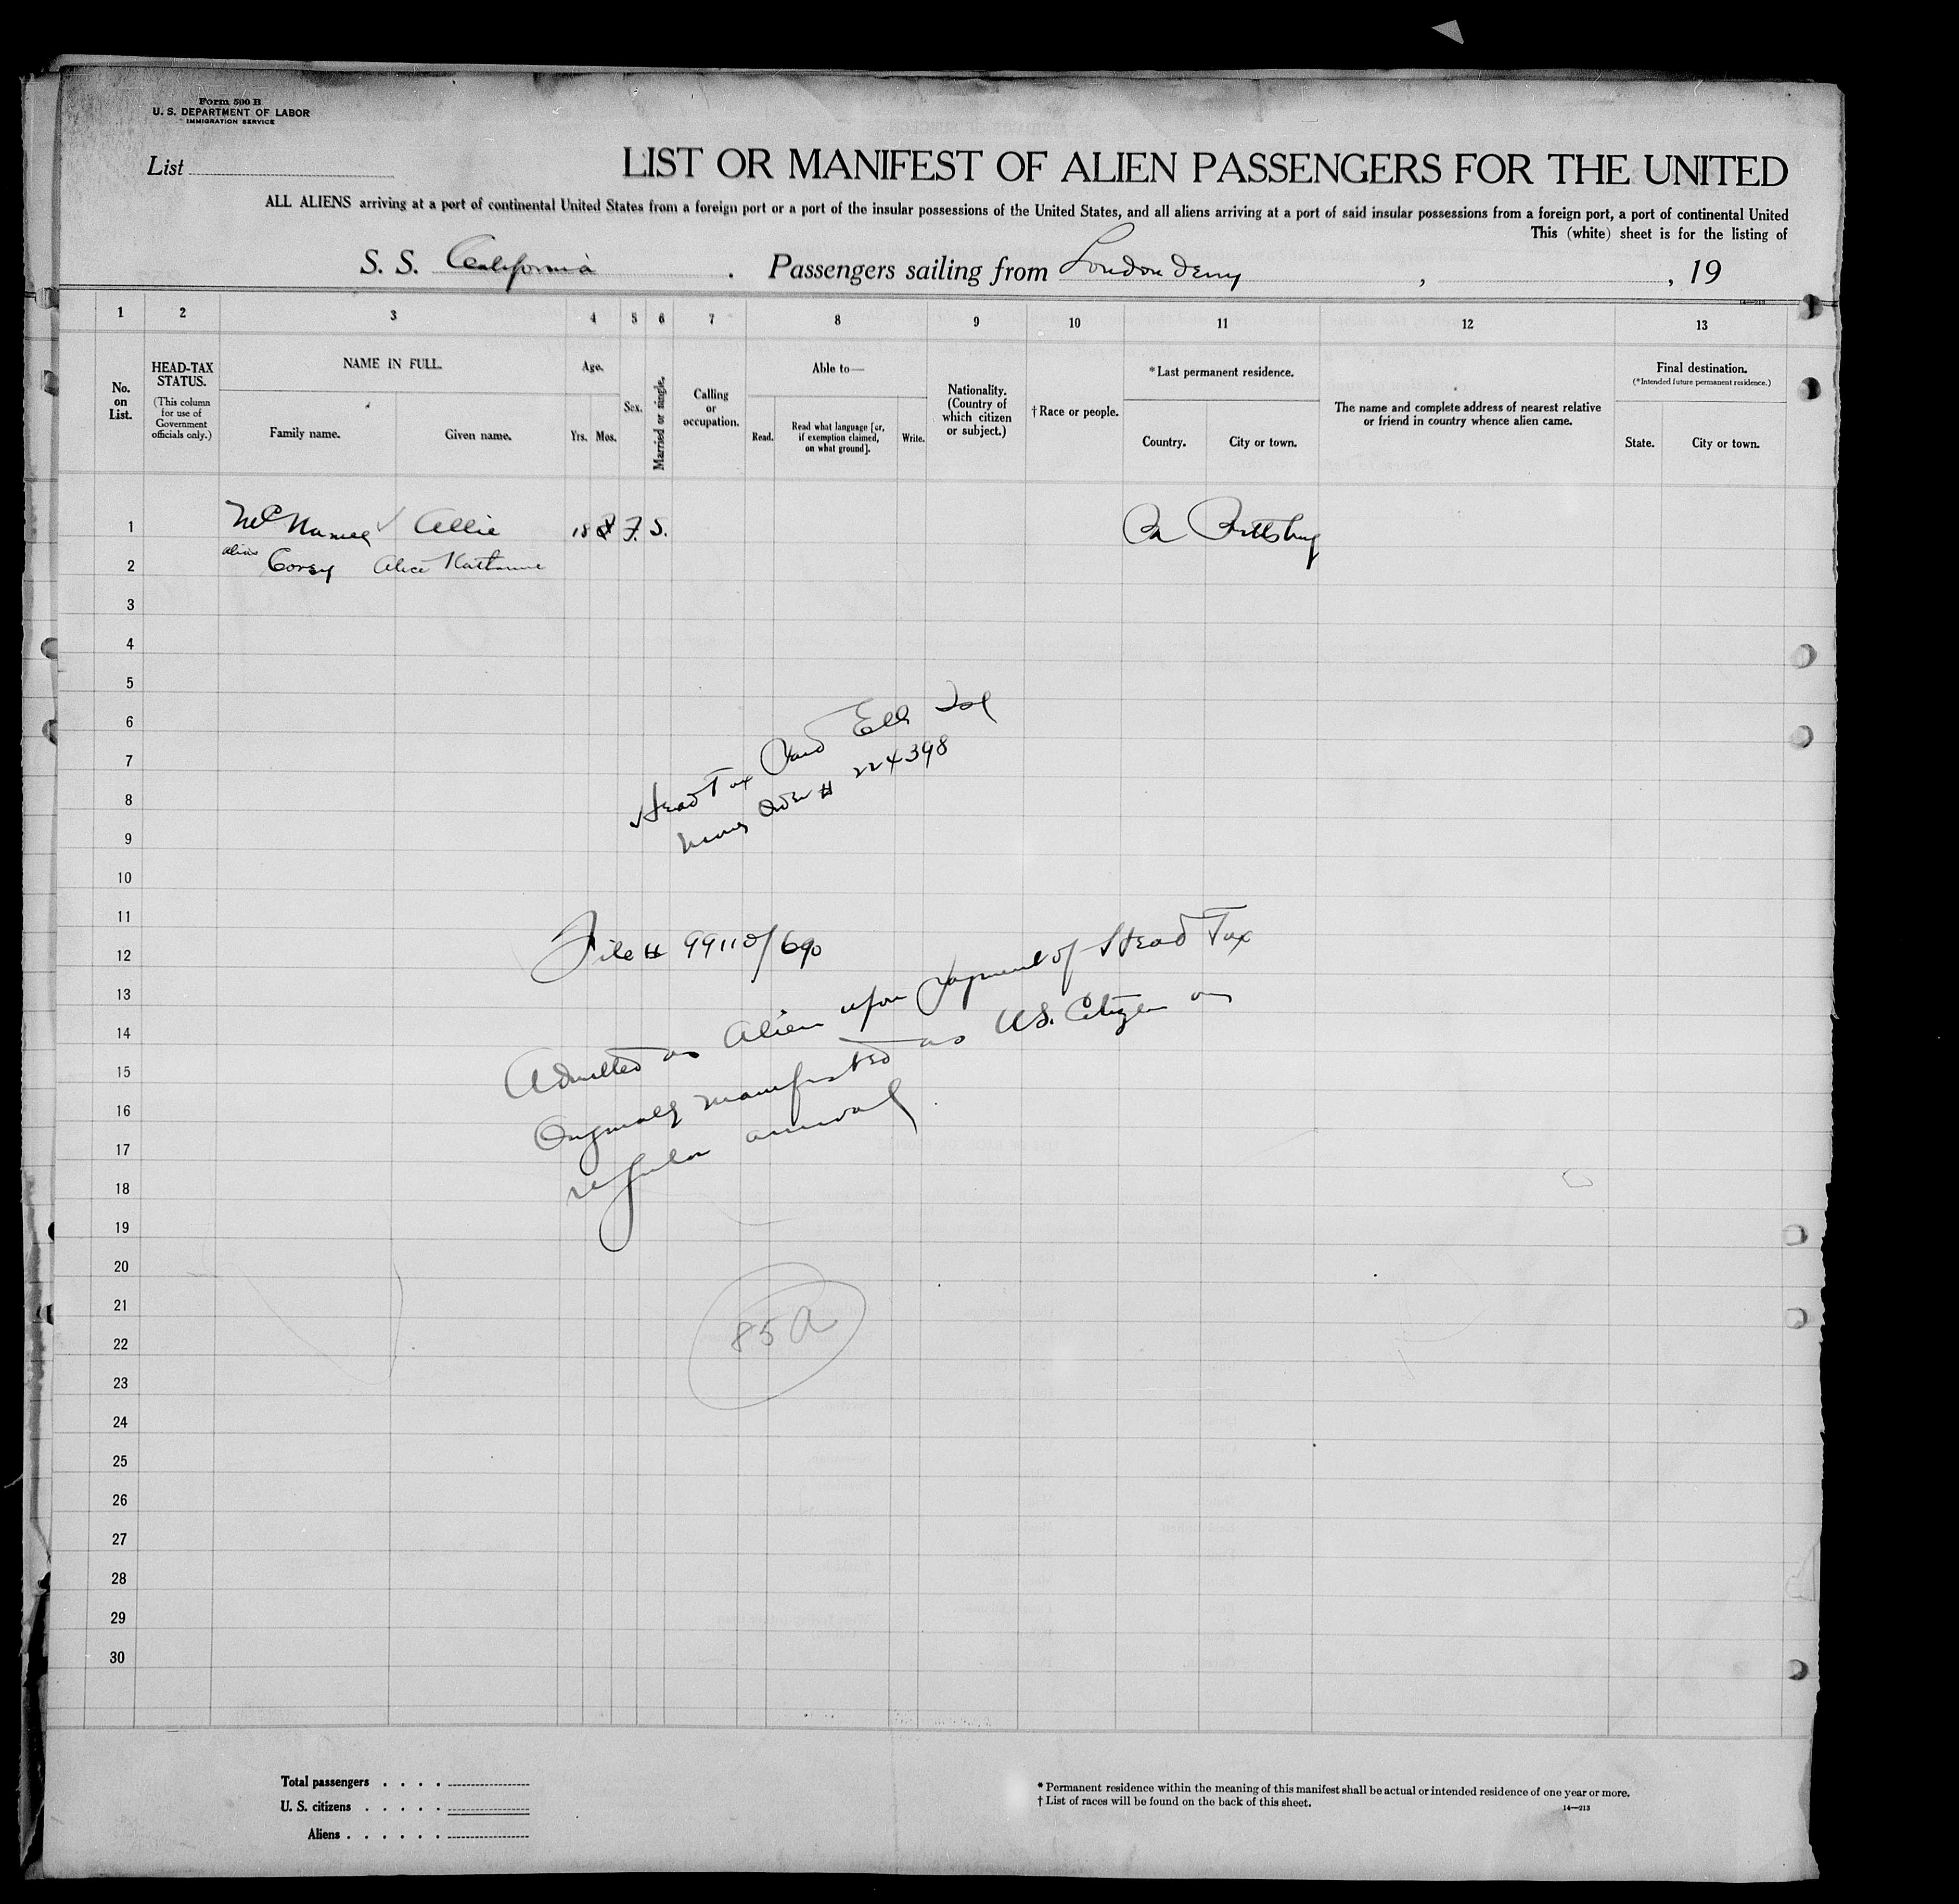 Form 500 B
U. S. DEPARTMENT OF LABOR
IMMIGRATION SERVICE
List
LIST OR MANIFEST OF ALIEN PASSENGERS FOR THE UNITED
ALL ALIENS arriving at a port of continental United States from a foreign port or a port of the insular possessions of the United States, and all aliens arriving at a port of said insular possessions from a foreign port, a port of continental United
This (white) sheet is for the listing of
S. S. California . Passengers sailing from Londonderry , , 19
14—213
1 2 3 4 5 6 7 8 9 10 11 12 13
No. on List.
HEAD-TAX STATUS.
(This column for use of Government officials only.)
NAME IN FULL.
Family name. Given name.
Age.
Yrs. Mos.
Sex.
Married or single.
Calling or occupation.
Able to—
Read. Read what language [or, if exemption claimed, on what ground]. Write.
Nationality. (Country of which citizen or subject.)
† Race or people.
* Last permanent residence.
Country. City or town.
The name and complete address of nearest relative or friend in country whence alien came.
Final destination.
(* Intended future permanent residence.)
State. City or town.
1 McNamee Allie 18 F. S. Pa Pittsburg
2 alias Corsy Alice
3
4
5
6
7
8
9
10
11
12
13
14
15
16
17
18
19
20
21
22
23
24
25
26
27
28
29
30
Head Tax Paid Ells Isl
Money Order # 224398
File # 99110/690
Admitted as Alien upon payment of Head Tax
Originally manifested as U.S. Citizen on
regular arrival.
85 A
Total passengers . . . .
U. S. citizens . . . . .
Aliens . . . . . .
* Permanent residence within the meaning of this manifest shall be actual or intended residence of one year or more.
† List of races will be found on the back of this sheet.
14—213